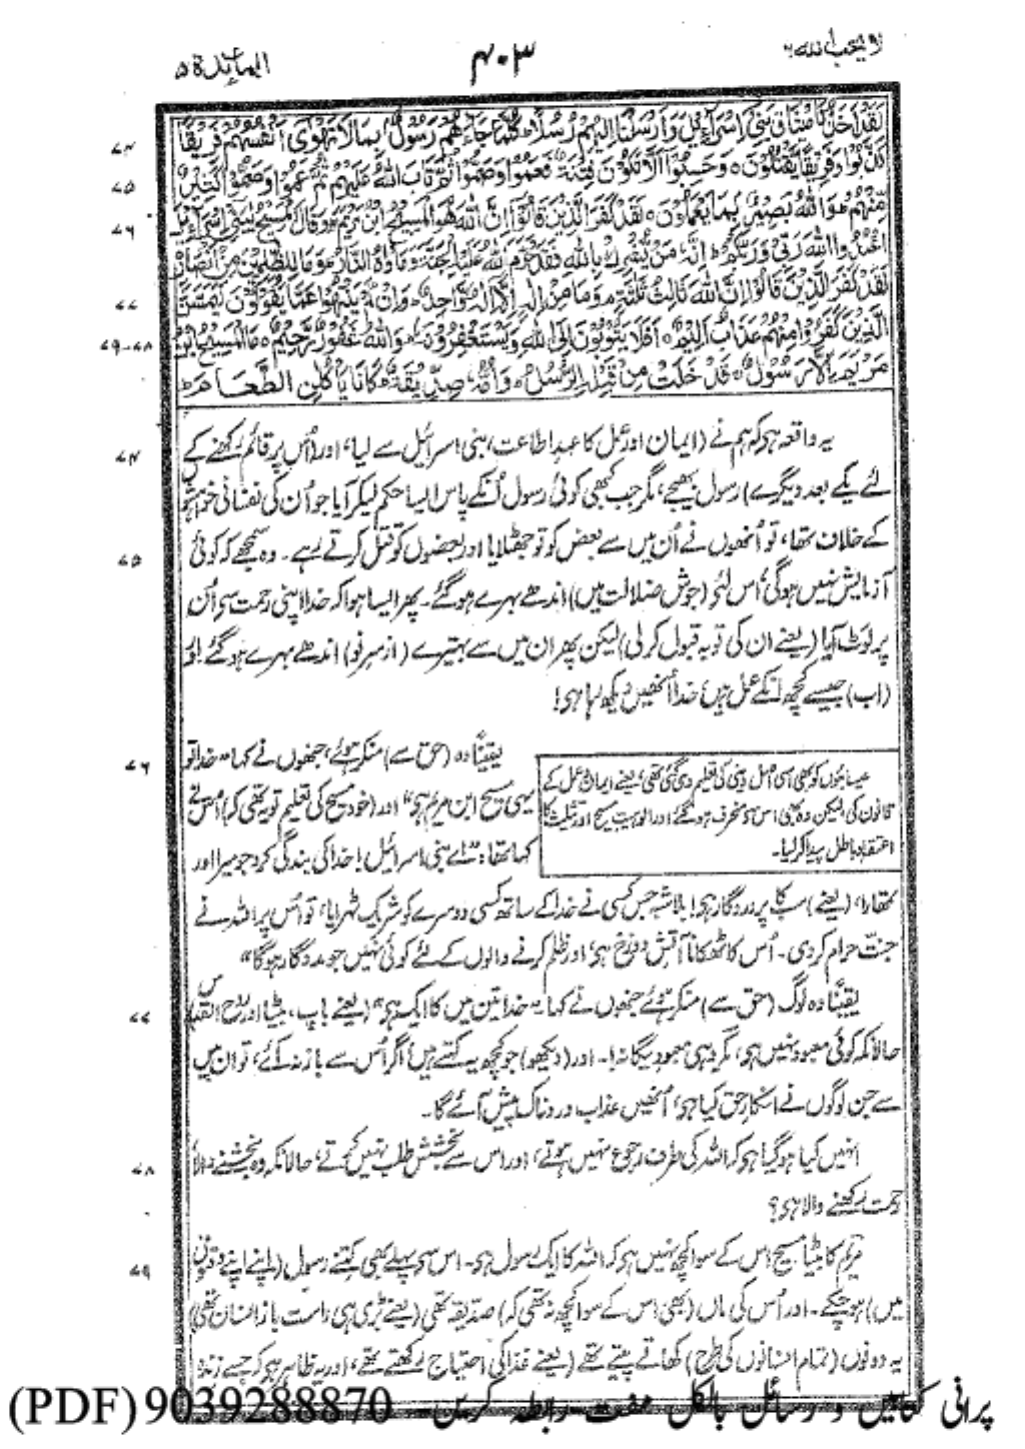 لا یحب اللہ ۶
۴۰۳
المائدۃ ۵
لَقَدْ اَخَذْنَا مِيْثَاقَ بَنِيْٓ اِسْرَآءِيْلَ وَاَرْسَلْنَآ اِلَيْهِمْ رُسُلًا ؕ كُلَّمَا جَآءَهُمْ رَسُوْلٌۢ بِمَا لَا تَهْوٰٓى اَنْفُسُهُمْ فَرِيْقًا
۷۴
كَذَّبُوْا وَفَرِيْقًا يَّقْتُلُوْنَ ۝ وَحَسِبُوْٓا اَلَّا تَكُوْنَ فِتْنَةٌ فَعَمُوْا وَصَمُّوْا ثُمَّ تَابَ اللّٰهُ عَلَيْهِمْ ثُمَّ عَمُوْا وَصَمُّوْا كَثِيْرٌ
۷۵
مِّنْهُمْ ؕ وَاللّٰهُ بَصِيْرٌۢ بِمَا يَعْمَلُوْنَ ۝ لَقَدْ كَفَرَ الَّذِيْنَ قَالُوْٓا اِنَّ اللّٰهَ هُوَ الْمَسِيْحُ ابْنُ مَرْيَمَ ؕ وَقَالَ الْمَسِيْحُ يٰبَنِيْٓ اِسْرَآءِيْلَ
۷۶
اعْبُدُوا اللّٰهَ رَبِّيْ وَرَبَّكُمْ ؕ اِنَّهٗ مَنْ يُّشْرِكْ بِاللّٰهِ فَقَدْ حَرَّمَ اللّٰهُ عَلَيْهِ الْجَنَّةَ وَمَاْوٰىهُ النَّارُ ؕ وَمَا لِلظّٰلِمِيْنَ مِنْ اَنْصَارٍ ۝
لَقَدْ كَفَرَ الَّذِيْنَ قَالُوْٓا اِنَّ اللّٰهَ ثَالِثُ ثَلٰثَةٍ ۘ وَمَا مِنْ اِلٰهٍ اِلَّآ اِلٰهٌ وَّاحِدٌ ؕ وَاِنْ لَّمْ يَنْتَهُوْا عَمَّا يَقُوْلُوْنَ لَيَمَسَّنَّ
۷۷
الَّذِيْنَ كَفَرُوْا مِنْهُمْ عَذَابٌ اَلِيْمٌ ۝ اَفَلَا يَتُوْبُوْنَ اِلَى اللّٰهِ وَيَسْتَغْفِرُوْنَهٗ ؕ وَاللّٰهُ غَفُوْرٌ رَّحِيْمٌ ۝ مَا الْمَسِيْحُ ابْنُ
۷۸-۷۹
مَرْيَمَ اِلَّا رَسُوْلٌ ۚ قَدْ خَلَتْ مِنْ قَبْلِهِ الرُّسُلُ ؕ وَاُمُّهٗ صِدِّيْقَةٌ ؕ كَانَا يَاْكُلٰنِ الطَّعَامَ ؕ
یہ واقعہ ہی کہ ہم نے (ایمان اور عمل کا عہد اطاعت، بنی اسرائیل سے لیا، اور (اُس پر قائم رکھنے کے
۷۴
لئے یکے بعد دیگرے) رسول بھیجے، مگر جب کبھی کوئی رسول اُنکے پاس ایسا حکم لیکر آیا جو اُن کی نفسانی خواہشو
کے خلاف تھا، تو اُنھوں نے اُن میں سے بعض کو تو جھٹلایا اور بعضوں کو قتل کرتے رہے۔ وہ سمجھے کہ کوئی
۷۵
آزمایش نہیں ہوگی، اس لئے (جوش ضلالت میں) اندھے بہرے ہوگئے۔ پھر ایسا ہوا کہ خدا اپنی رحمت سے اُن
پر لوٹ آیا (یعنے ان کی توبہ قبول کرلی) لیکن پھر ان میں سے بہتیرے (از سر نو) اندھے بہرے ہوگئے! اور
(اب) جیسے کچھ اُنکے عمل ہیں، خدا اُنھیں دیکھ رہا ہی!
یقیناً وہ (حق سے) منکر ہوئے، جنھوں نے کہا "خدا تو
۷۶
یہی مسیح ابن مریم ہی" اور (خود مسیح کی تعلیم تو یہ تھی کہ) اُس نے
کہا تھا: "اے بنی اسرائیل! خدا کی بندگی کرو جو میرا اور
عیسائیوں کو بھی اسی اصل دینی کی تعلیم دی گئی تھی، یعنے ایمان و عمل کے
قانون کی، لیکن وہ بھی اس سے منحرف ہوگئے اور الوہیت مسیح اور تثلیث کا
اعتقاد باطل پیدا کرلیا۔
تمھارا، (یعنے) سب کا پروردگار ہی! بلاشبہ جس کسی نے خدا کے ساتھ کسی دوسرے کو شریک ٹھہرایا، تو اُس پر اللہ نے
جنت حرام کردی۔ اُس کا ٹھکانا آتش دوزخ ہی، اور ظلم کرنے والوں کے لئے کوئی نہیں جو مددگار ہوگا"
یقیناً وہ لوگ (حق سے) منکر ہوئے جنھوں نے کہا "خدا تین میں کا ایک ہی" (یعنے باپ، بیٹا اور روح القدس)
۷۷
حالانکہ کوئی معبود نہیں ہی، مگر وہی معبود یگانہ!۔ اور (دیکھو) جو کچھ یہ کہتے ہیں، اگر اُس سے باز نہ آئے، تو ان میں
سے جن لوگوں نے انکار حق کیا ہی، اُنھیں عذاب دردناک پیش آئے گا۔
اُنہیں کیا ہوگیا ہی کہ اللہ کی طرف رجوع نہیں ہوتے، اور اس سے بخشش طلب نہیں کرتے، حالانکہ وہ بخشنے والا
۷۸
رحمت رکھنے والا ہی؟
مریم کا بیٹا مسیح اس کے سوا کچھ نہیں ہی کہ اللہ کا ایک رسول ہی۔ اس سے پہلے بھی کتنے رسول (اپنے اپنے وقتوں
۷۹
میں) ہوچکے۔ اور اُس کی ماں (بھی اس کے سوا کچھ نہ تھی کہ) صدیقہ تھی (یعنے بڑی ہی راست باز انسان تھی)
یہ دونوں (تمام انسانوں کی طرح) کھاتے پیتے تھے (یعنے غذا کی احتیاج رکھتے تھے، اور یہ ظاہر ہی کہ جسے زندہ
پرانی کتابیں و رسائل بالکل مفت رابطہ کریں۔ 9039288870 (PDF)